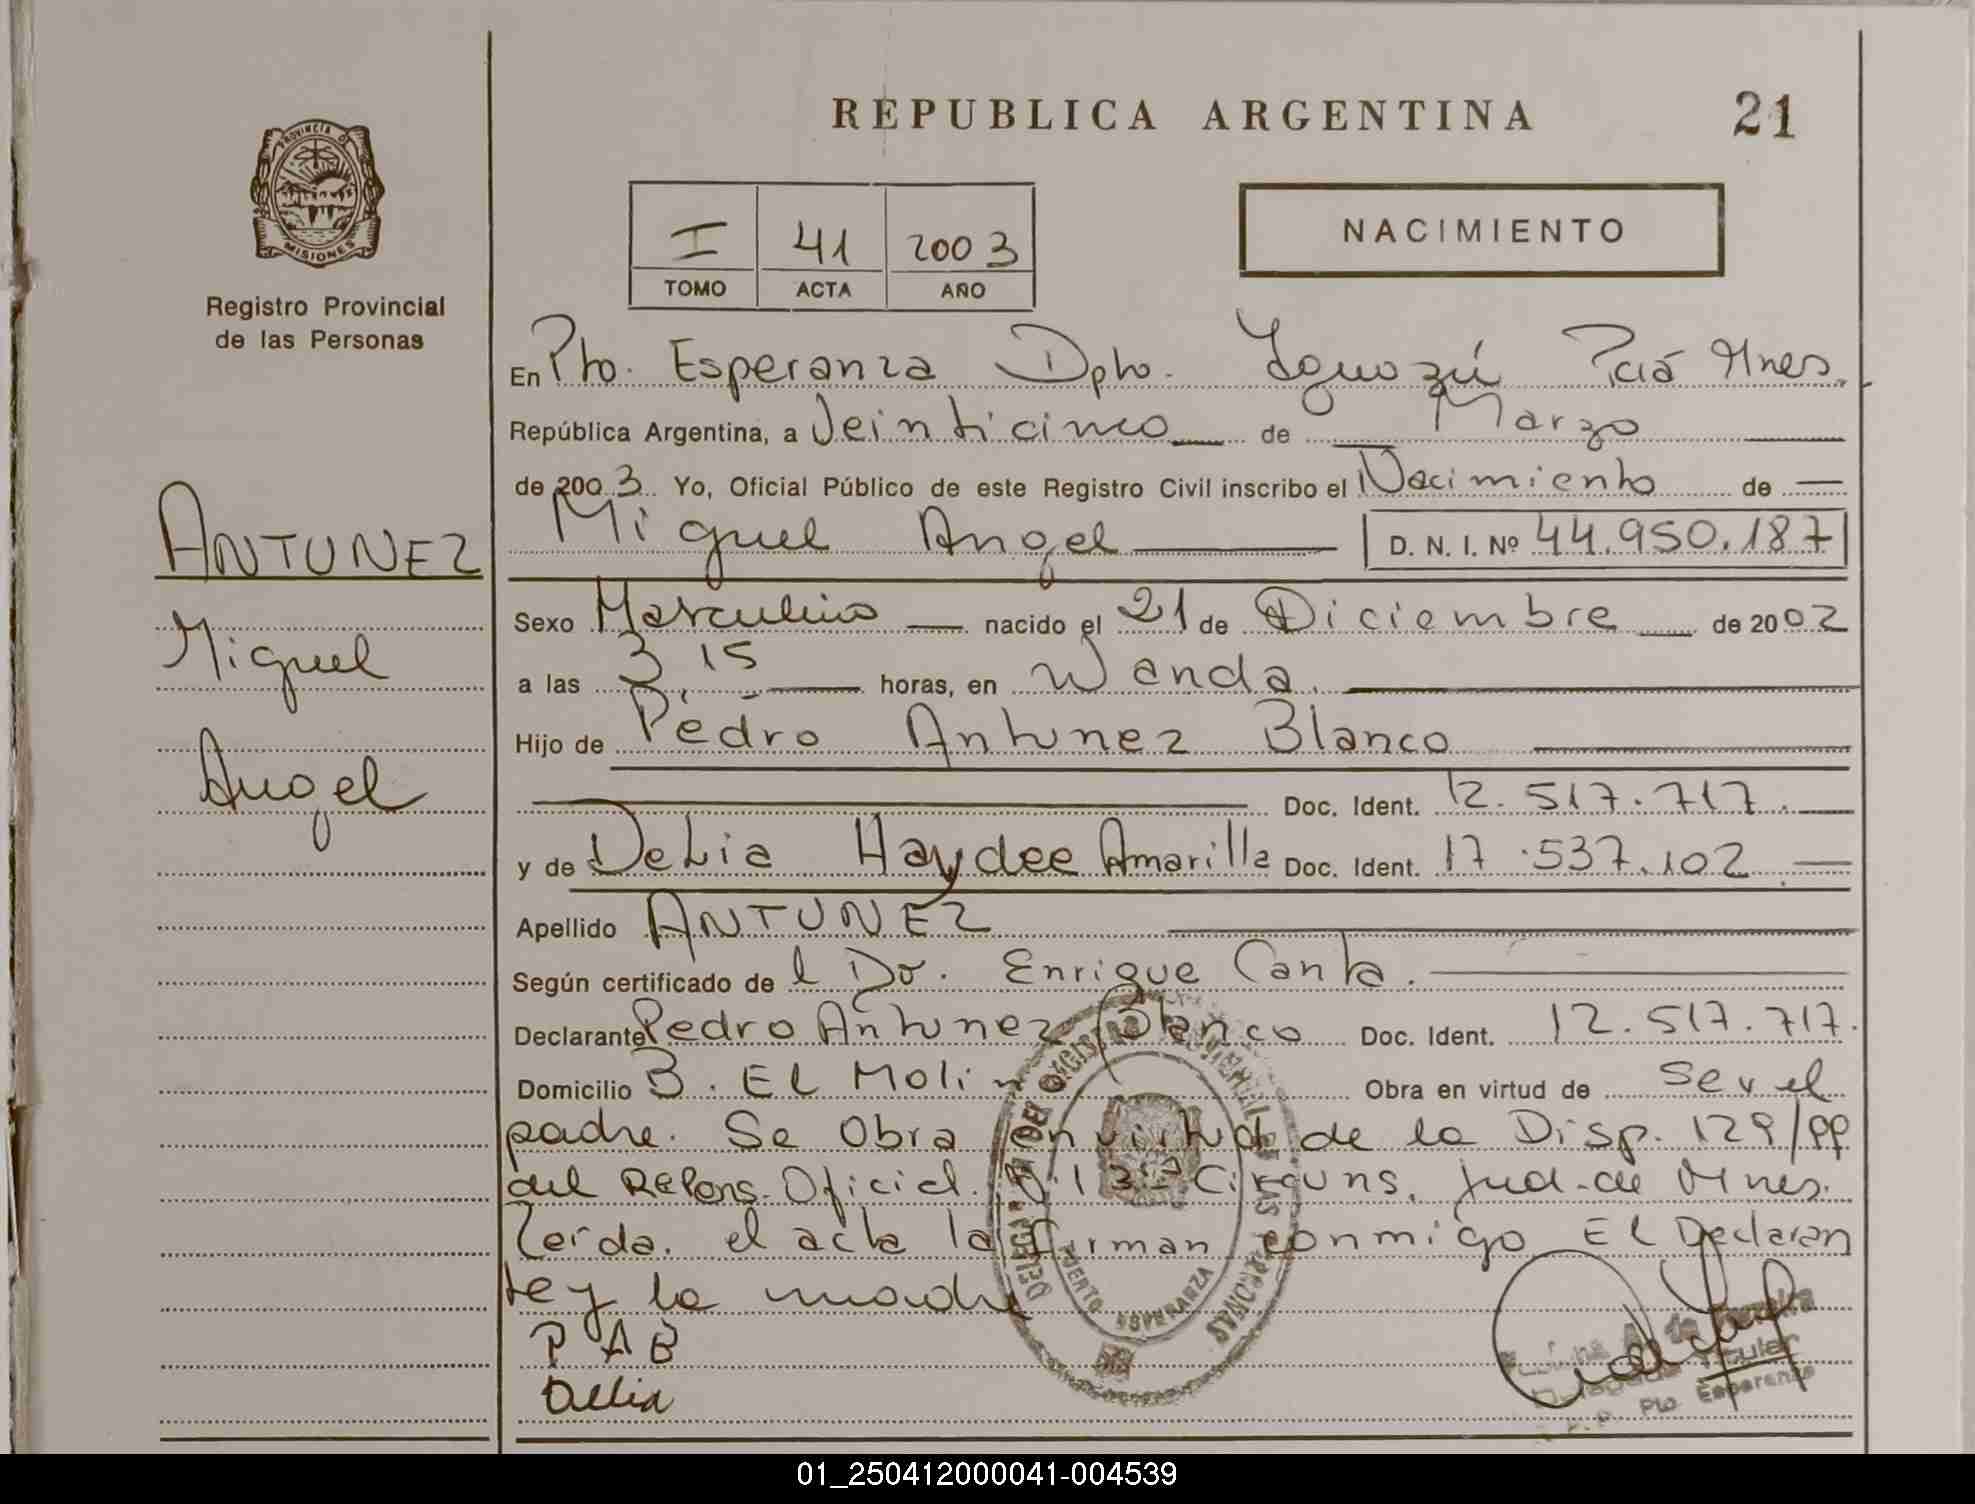 REPUBLICA ARGENTINA
21
PROVINCIA DE
MISIONES
Registro Provincial
de las Personas
I 41 2003
TOMO ACTA AÑO
NACIMIENTO
En Pto. Esperanza Dpto. Iguazú Pciá Mnes.
República Argentina, a Veinticinco de Marzo
de 2003. Yo, Oficial Público de este Registro Civil inscribo el Nacimiento de
Miguel Angel D. N. I. Nº 44.950.187
ANTUNEZ
Miguel
Angel
Sexo Masculino nacido el 21 de Diciembre de 2002
a las 3,15 horas, en Wanda.
Hijo de Pedro Antunez Blanco
Doc. Ident. 12.517.717.
y de Delia Haydee Amarilla Doc. Ident. 17.537.102.
Apellido ANTUNEZ
Según certificado de l Dr. Enrique Canta.
Declarante Pedro Antunez Blanco Doc. Ident. 12.517.717.
Domicilio B. El Molino Obra en virtud de Ser el
padre. Se Obra en virtud de la Disp. 129/99
del Oficial Circuns. Jud. de Mnes.
Leída el acta la firman conmigo El Declaran
te y la madre
P A B
Delia
PUERTO ESPERANZA
DE LAS PERSONAS
Titular
Pto Esperanza
01_250412000041-004539